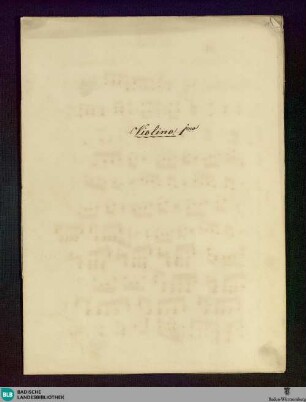 Violino pmo
BLB
BADISCHE
LANDESBIBLIOTHEK
Baden-Württemberg